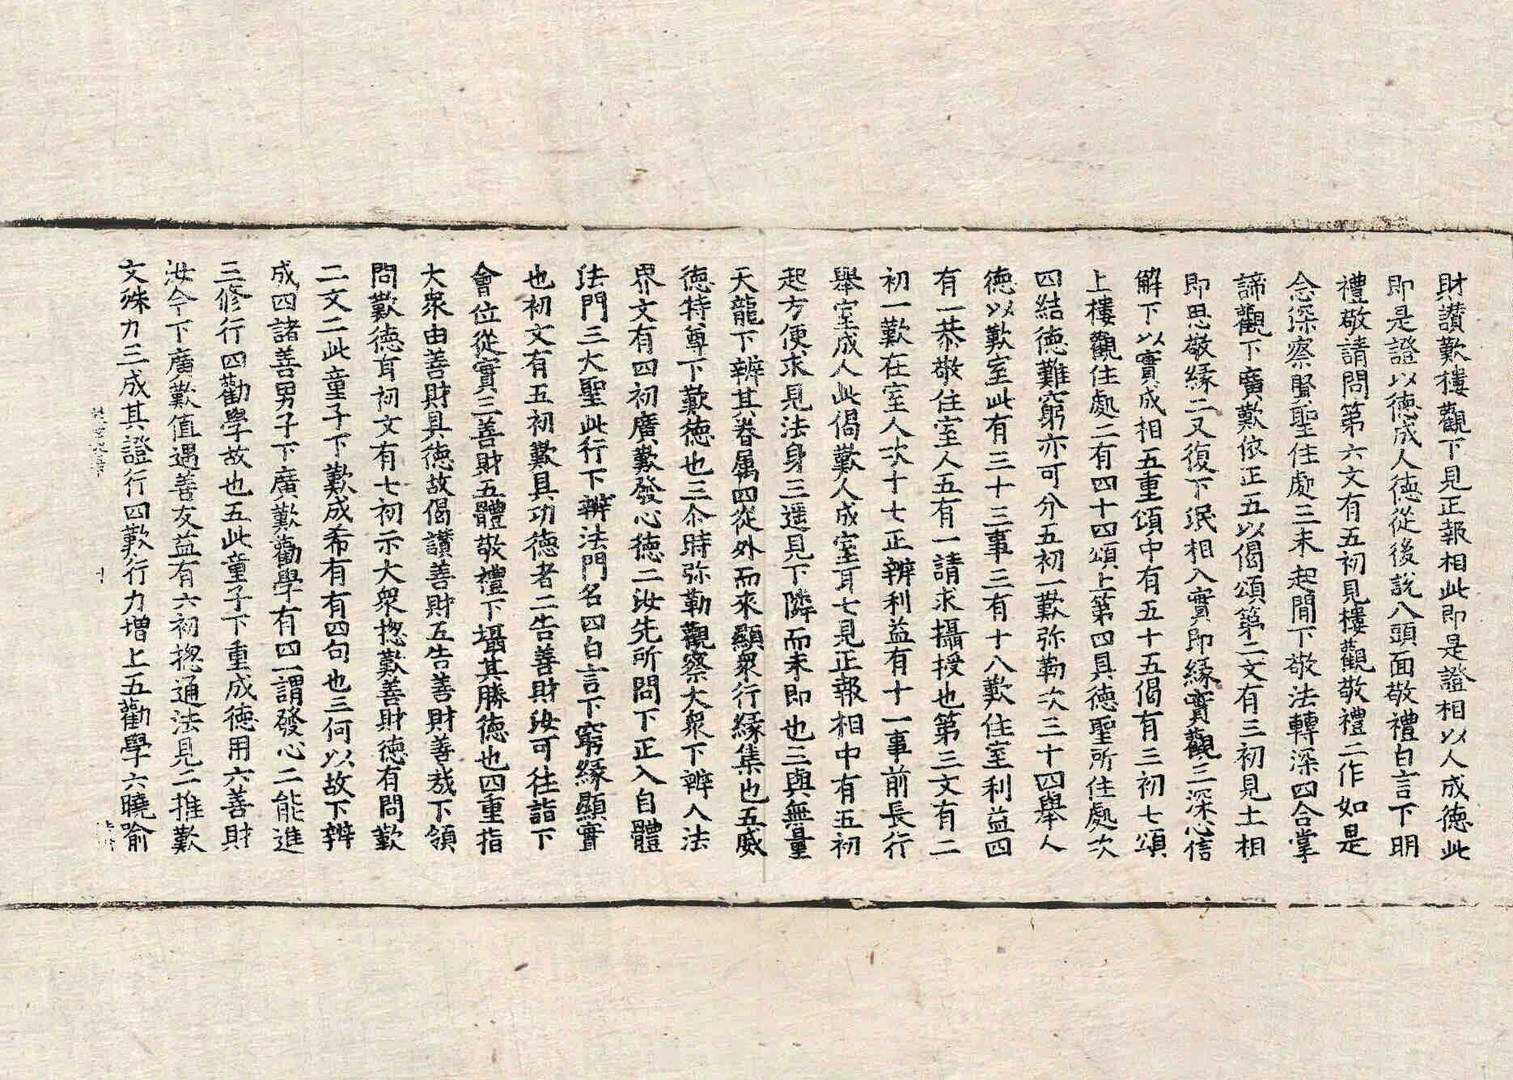 財讃歎樓觀下見正報相此即是證相以人成徳此
即是證以徳成人徳從後說八頭面敬禮白言下明
禮敬請問第六文有五初見樓觀敬禮二作如是
念深察賢聖住處三未起間下敬法轉深四合掌
諦觀下廣歎依正五以偈頌第二文有三初見土相
即思敬縁二又復下泯相入實即縁實觀三深心信
解下以實成相五重頌中有五十五偈有三初七頌
上樓觀住處二有四十四頌上第四具徳聖所住處次
四結徳難窮亦可分五初一歎弥勒次三十四舉人
徳以歎室此有三十三事三有十八歎住室利益四
有一恭敬住室人五有一請求攝授也第三文有二
初一歎在室人次十七正辨利益有十一事前長行
舉室成人此偈歎人成室耳七見正報相中有五初
起方便求見法身三遥見下隣而未即也三與無量
天龍下辨其眷属四從外而來顯衆行縁集也五威
徳特尊下歎徳也三尒時弥勒觀察大衆下辨入法
界文有四初廣歎發心徳二汝先所問下正入自體
法門三大聖此行下辨法門名四白言下窮縁顯實
也初文有五初歎具功徳者二告善財汝可往詣下
會位從實三善財五體敬禮下攝其勝徳也四重指
大衆由善財具徳故偈讃善財五告善財善哉下領
問歎徳耳初文有七初示大衆揔歎善財徳有問歎
二文二此童子下歎成希有有四句也三何以故下辨
成四諸善男子下廣歎勸學有四一謂發心二能進
三修行四勸學故也五此童子下重成徳用六善財
汝今下廣歎值遇善友益有六初揔通法見二推歎
文殊力三成其證行四歎行力增上五勸學六曉喻